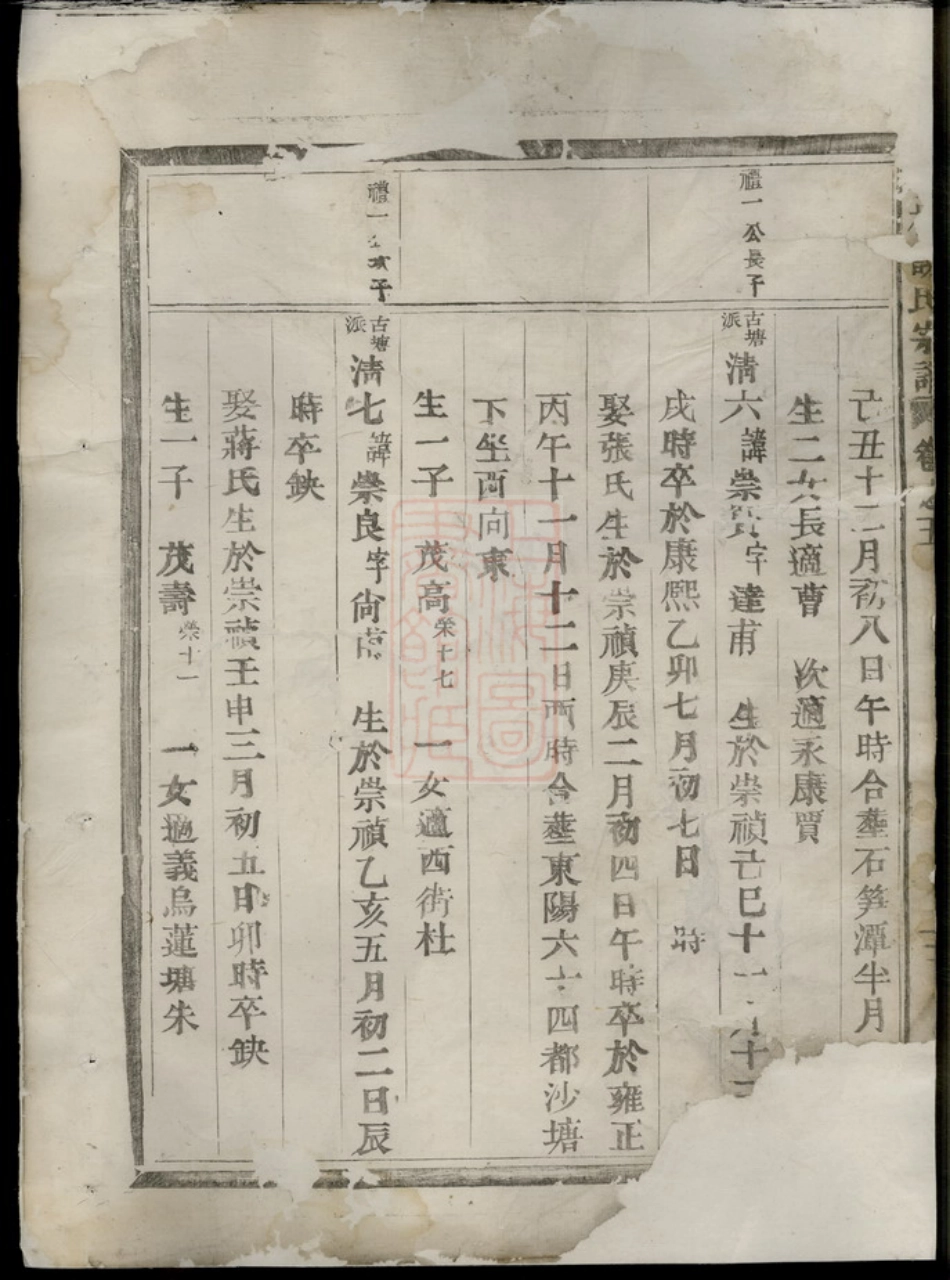 氏宗譜
己丑十二月初八日午時合塟石笋潭半月
生二女長適曹　次適永康賈
禮一公長子
古塘派淸六諱崇賢字達甫　生於崇禎己巳十一月十
戌時卒於康熙乙卯七月初七日　時
娶張氏生於崇禎庚辰二月初四日午時卒於雍正
丙午十一月十二日酉時合塟東陽六十四都沙塘
下坐酉向東
生一子　茂高榮十七　一女適西街杜
禮一公次子
古塘派淸七諱崇良字尙　生於崇禎乙亥五月初二日辰
時卒缺
娶蔣氏生於崇禎壬申三月初五日卯時卒缺
生一子　茂壽榮十一　一女適義烏蓮塘朱